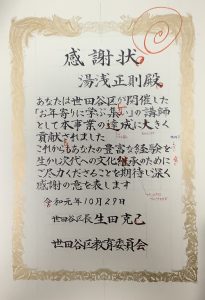 感謝状
湯浅正則殿
あなたは世田谷区が開催した
「お年寄りに学ぶ集い」の講師
として本事業の達成に大きく
貢献されました
これからもあなたの豊富な経験を
生かし次代への文化継承のために
ご尽力くださることを期待し深く
感謝の意を表します
令和元年10月29日
世田谷区長生田克己
世田谷区教育委員会